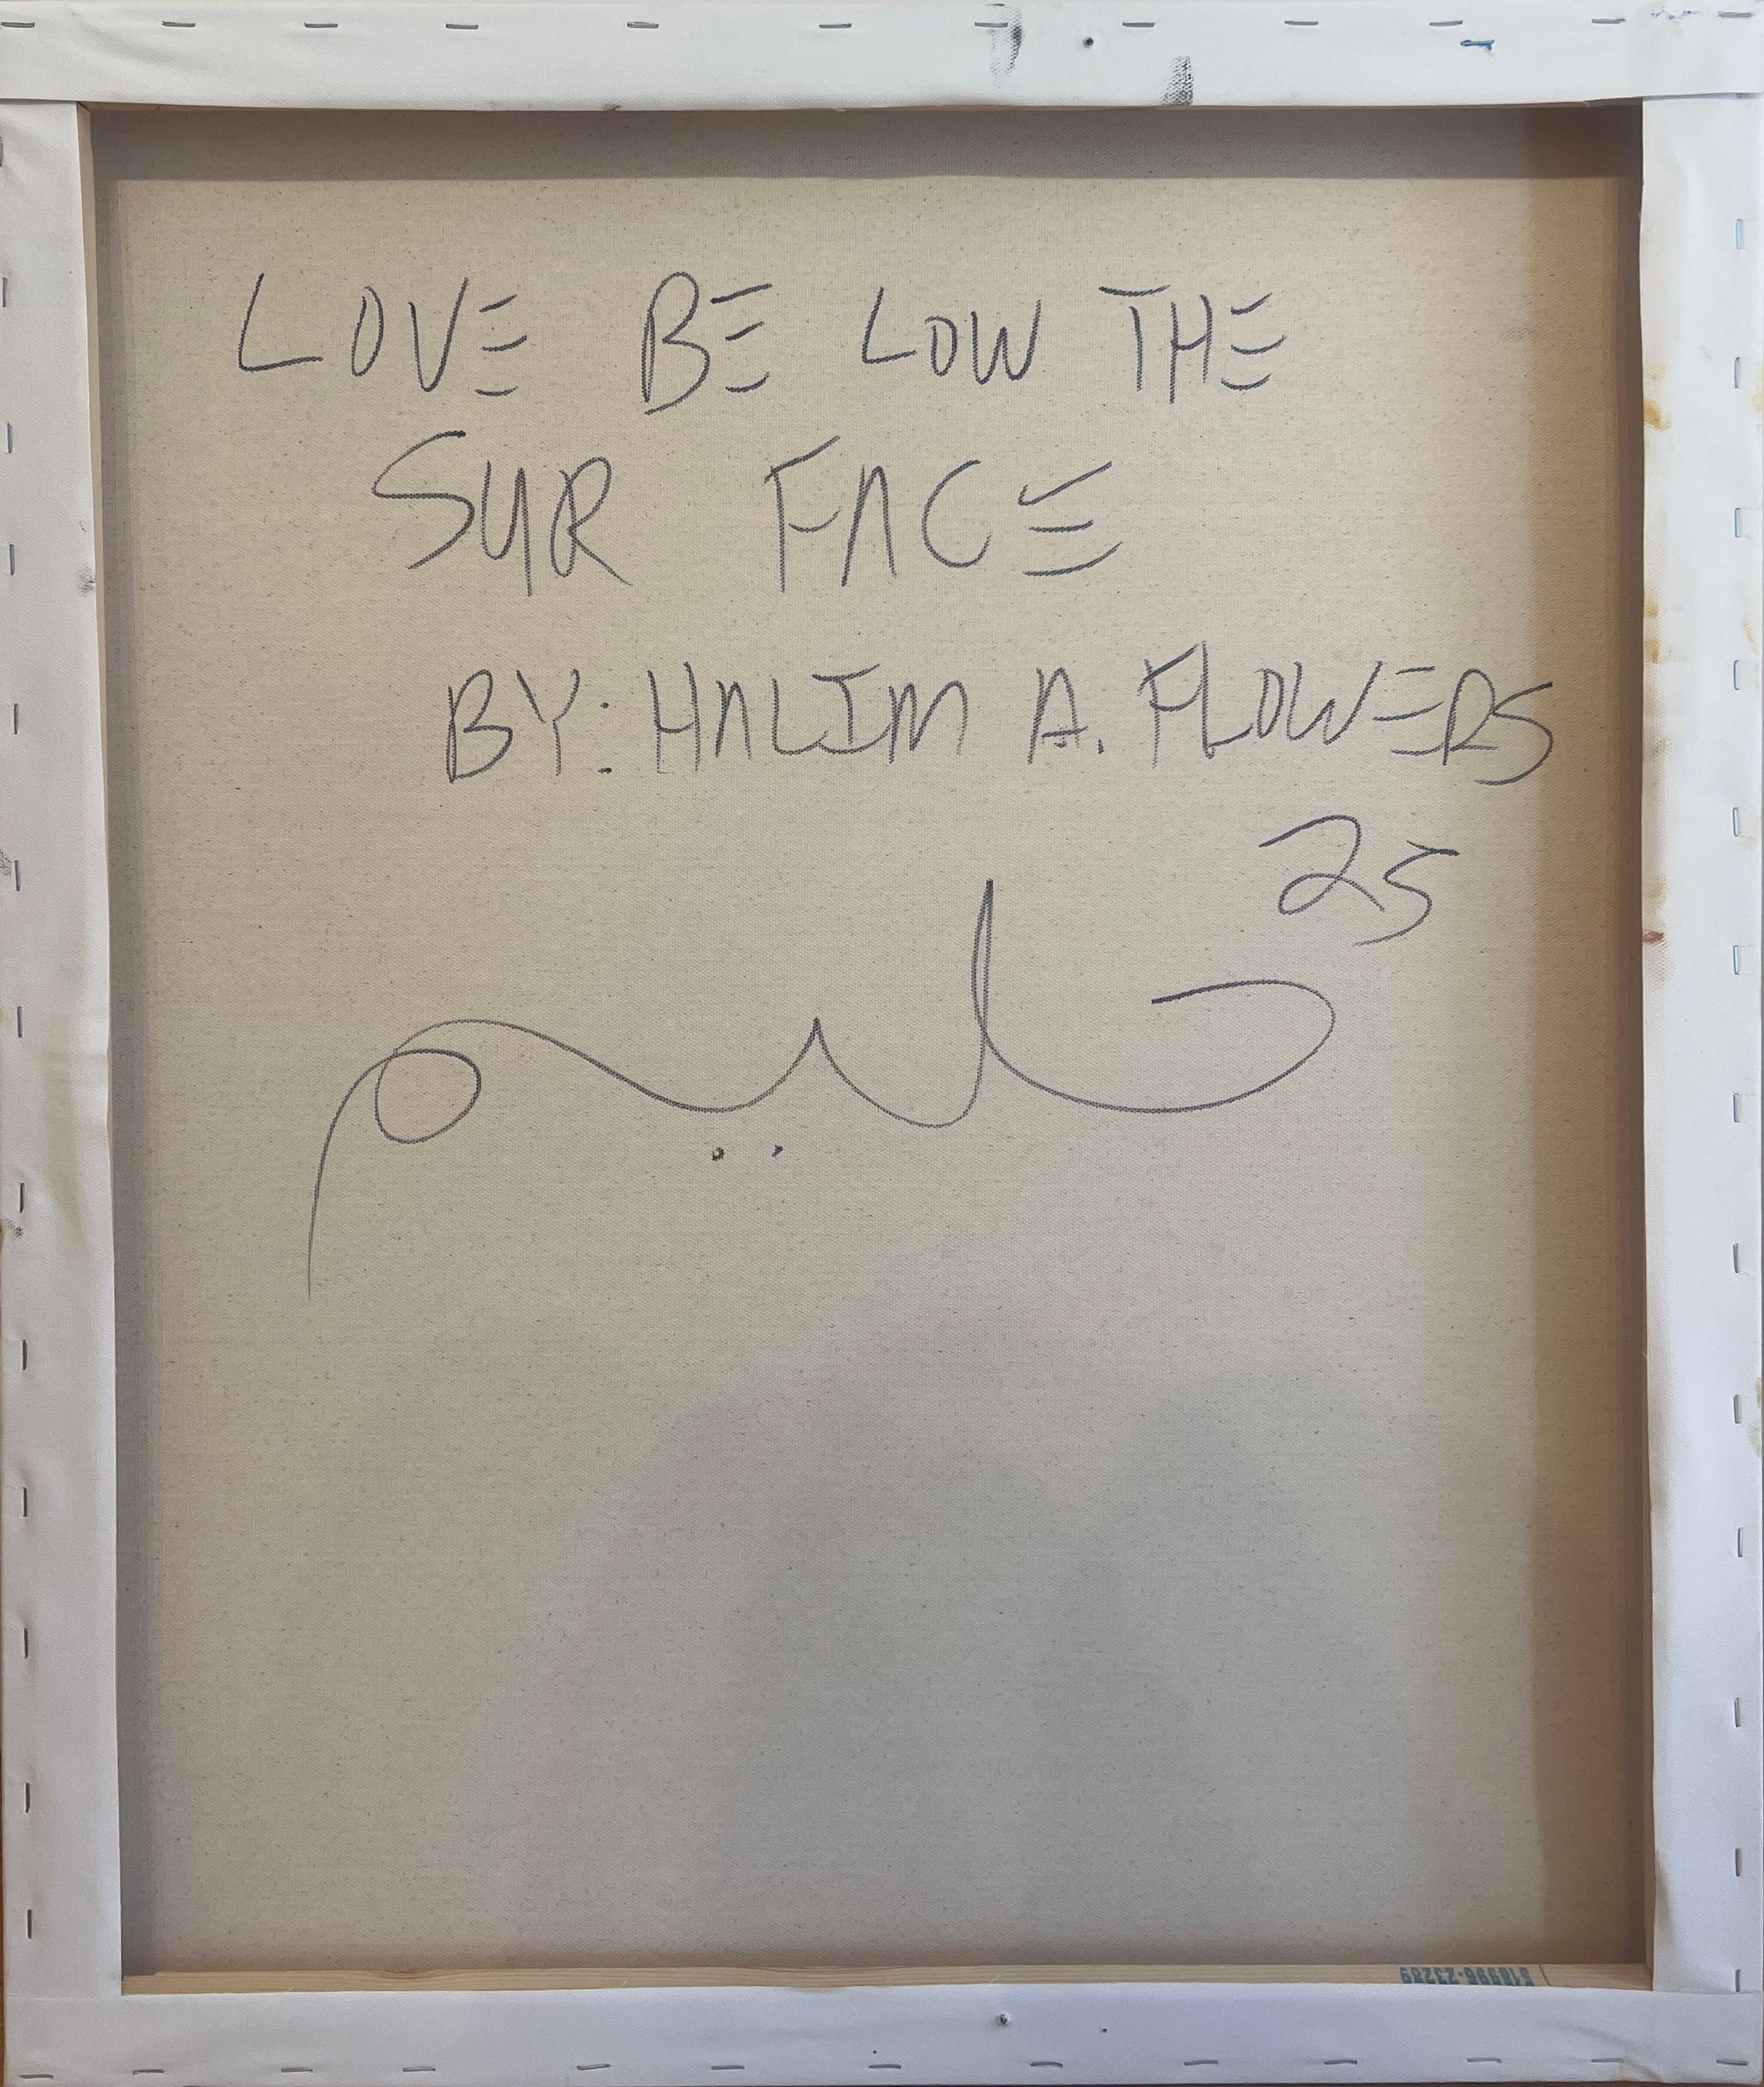 LOVE BE LOW THE
SUR FACE
BY: HALIM A. FLOWERS
25
حليم
518996-23289